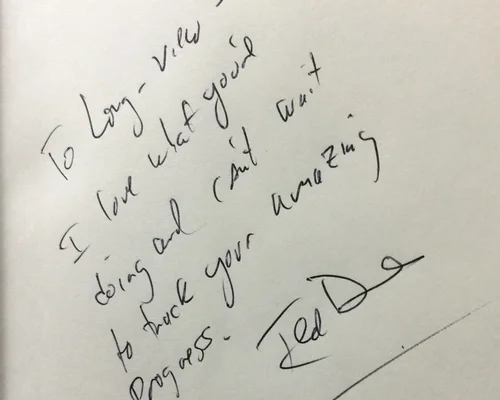 To Long-View -
I love what you're
doing and can't wait
to track your amazing
progress.
Ted